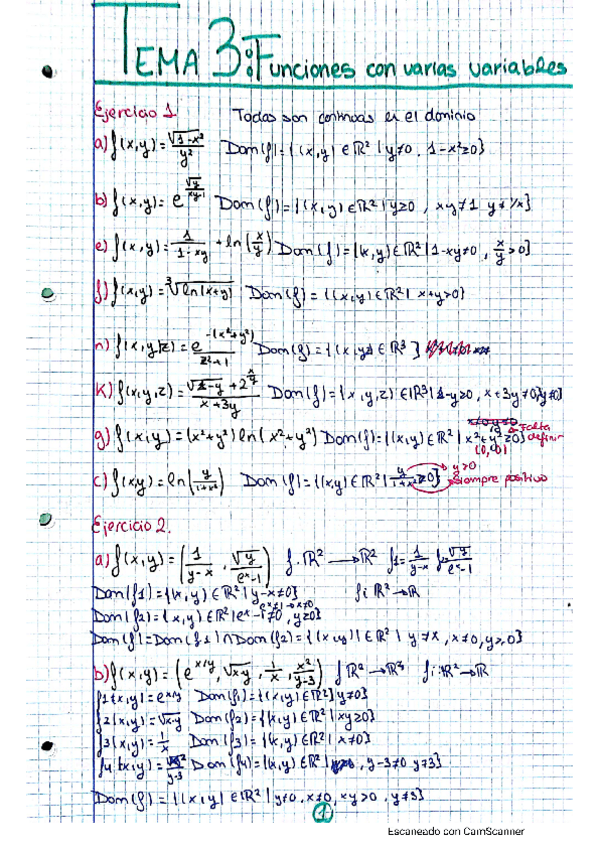 TEMA 3: Funciones con varias variables
Ejercicio 1 Todas son continuas en el dominio
a) f(x,y) = √(1-x²)/y² Dom(f) = {(x,y) ∈ ℝ² | y≠0, 1-x²≥0}
b) f(x,y) = e Dom(f) = {(x,y) ∈ ℝ² | y≥0, xy≠1 y≠1/x}
e) f(x,y) = 1/(1-xy) + ln(x/y) Dom(f) = {(x,y) ∈ ℝ² | 1-xy≠0, x/y>0}
f) f(x,y) = ∛ln(x+y) Dom(f) = {(x,y) ∈ ℝ² | x+y>0}
n) f(x,y,z) = e^(-(x²+y²))/(z²+1) Dom(f) = {(x,y,z) ∈ ℝ³}
K) f(x,y,z) = + 2 / (x+3y) Dom(f) = {x,y,z) ∈ ℝ³ | 1-y≥0, x+3y≠0, y≠0}
g) f(x,y) = (x²+y²) ln(x²+y²) Dom(f) = {(x,y) ∈ ℝ² | x²+y²≥0} Falta definir (0,0)
c) f(x,y) = ln(y/(1+x²)) Dom(f) = {(x,y) ∈ ℝ² | y/(1+x²) >0} y>0 Siempre positivo
Ejercicio 2.
a) f(x,y) = (1/(y-x), √y/(eˣ-1)) f: ℝ² → ℝ² f1 = 1/(y-x) f2 = √y/(eˣ-1)
Dom(f1) = {(x,y) ∈ ℝ² | y-x≠0} fi: ℝ² → ℝ
Dom(f2) = {(x,y) ∈ ℝ² | eˣ-1≠0, y≥0} eˣ≠1 → x≠0
Dom(f) = Dom(f1) ∩ Dom(f2) = {(x,y) ∈ ℝ² | y≠x, x≠0, y≥0}
b) f(x,y) = (e^(x/y), √xy, 1/x, x²/(y-3)) f: ℝ² → ℝ⁴ fi: ℝ² → ℝ
f1(x,y) = e^(x/y) Dom(f1) = {(x,y) ∈ ℝ² | y≠0}
f2(x,y) = √xy Dom(f2) = {(x,y) ∈ ℝ² | xy≥0}
f3(x,y) = 1/x Dom(f3) = {(x,y) ∈ ℝ² | x≠0}
f4(x,y) = x²/(y-3) Dom(f4) = {(x,y) ∈ ℝ² | y-3≠0 y≠3}
Dom(f) = {(x,y) ∈ ℝ² | y≠0, x≠0, xy>0, y≠3}
1
Escaneado con CamScanner